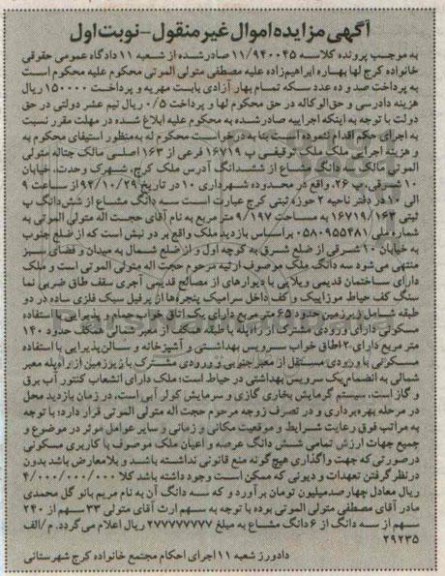 آگهی مزایده اموال غیر منقول - نوبت اول
به موجب پرونده کلاسه ۱۱/۹۴۰۰۴۵ صادر شده از شعبه ۱۱ دادگاه عمومی حقوقی
خانواده کرج لها بهاره ابراهیم‌زاده علیه مصطفی متولی الموتی محکوم علیه محکوم است
به پرداخت صد و ده عدد سکه تمام بهار آزادی بابت مهریه و پرداخت ۱۵۰۰۰۰ ریال
هزینه دادرسی و حق‌الوکاله در حق محکوم لها و پرداخت ۰/۵ ریال نیم عشر دولتی در حق
دولت با توجه به اینکه اجراییه صادر شده به محکوم علیه ابلاغ شده در مهلت مقرر نسبت
به اجرای حکم اقدام ننموده است بنا به درخواست محکوم له به‌منظور استیفای محکوم به
و هزینه اجرایی ملک ملک توقیفی پ ۱۶۷۱۹ فرعی از ۱۶۳ اصلی مالک متولی
الموتی مالک سه دانگ مشاع از ششدانگ آدرس ملک کرج، شهرک وحدت، خیابان
۱۰ شرقی، پ ۲۶، واقع در محدوده شهرداری ۱۰ در تاریخ ۹۴/۱۰/۲۹ از ساعت ۹
الی ۱۰ در دفتر ناحیه ۲ حوزه ثبتی کرج عبارت است سه دانگ مشاع از شش‌دانگ پ
ثبتی ۱۶۷۱۹/۱۶۳ به مساحت ۱۹۷/۹ متر مربع به نام آقای حجت اله متولی الموتی به
شماره ملی ۰۵۸۰۹۵۵۴۸۱ براساس بازدید ملک واقع بر دو نبش است که از ضلع جنوب
به خیابان ۱۰ شرقی از ضلع شرق به کوچه اول و از ضلع شمال به میدان و فضای سبز
منتهی می‌شود سه دانگ ملک موصوف ارثیه مرحوم حجت اله متولی الموتی است و ملک
دارای ساختمان قدیمی ویلایی با دیوارهای از مصالح قدیمی آجری سقف طاق ضربی نما
سنگ کف حیاط موزاییک و کف داخل سرامیک پنجره‌ها از پرفیل سبک فلزی ساده در دو
طبقه شامل زیرزمین حدود ۶۵ متر مربع دارای یک اتاق خواب حمام و پذیرایی با استفاده
مسکونی دارای ورودی مشترک از راه‌پله با طبقه همکف از معبر شمالی همکف حدود ۱۴۰
متر مربع دارای ۲ اطاق خواب سرویس بهداشتی و آشپزخانه و سالن پذیرایی با استفاده
مسکونی با ورودی مستقل از معبر جنوبی و ورودی مشترک با زیرزمین از راه‌پله معبر
شمالی به انضمام یک سرویس بهداشتی در حیاط است؛ ملک دارای انشعاب کنتور آب برق
و گاز است، سیستم گرمایش بخاری گازی و سرمایش کولر آبی است، در زمان بازدید محل
در مرحله بهره‌برداری و در تصرف زوجه مرحوم حجت اله متولی الموتی قرار دارد؛ با توجه
به مراتب فوق رعایت شرایط و موقعیت مکانی و زمانی و سایر عوامل موثر در موضوع و
جمیع جهات ارزش تمامی شش دانگ عرصه و اعیان ملک موصوف با کاربری مسکونی
در صورتی که جهت واگذاری هیچ گونه منع قانونی نداشته باشد و بلامعارض باشد بدون
در نظر گرفتن تعهدات و دیونی که ممکن است وجود داشته باشد کلا ۴/۰۰۰/۰۰۰/۰۰۰
ریال معادل چهارصد میلیون تومان برآورد و که سه دانگ آن به نام مریم بانو گل محمدی
مادر آقای مصطفی متولی الموتی بوده با توجه به سهم ارث آقای متولی ۳۳ سهم از ۲۴۰
سهم از سه دانگ از ۶ دانگ مشاع به مبلغ ۲۷۷۷۷۷۷۷۷ ریال اعلام می‌گردد. م/الف
۲۹۲۳۵
دادورز شعبه ۱۱ اجرای احکام مجتمع خانواده کرج شهرستانی